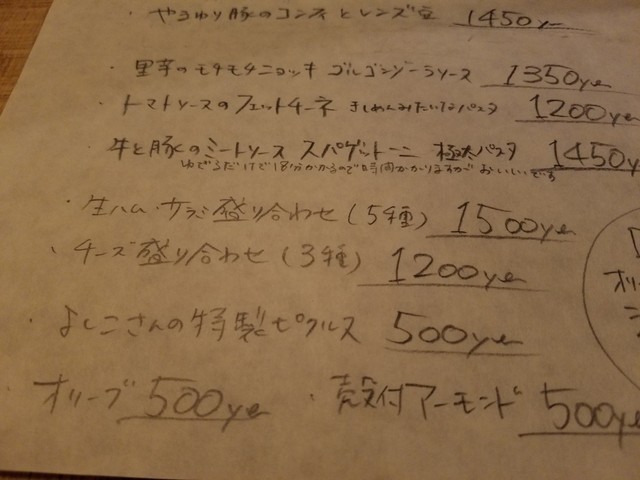 ・やまゆり豚のコンフィとレンズ豆 1450yen
・里芋のモチモチニョッキ ゴルゴンゾーラソース 1350yen
・トマトソースのフェットチーネ きしめんみたいなパスタ 1200yen
・牛と豚のミートソース スパゲットーニ 極太パスタ 1450y
ゆでるだけで18分かかるので時間かかりますが おいしいです
・生ハム・サラミ盛り合わせ(5種) 1500yen
・チーズ盛り合わせ(3種) 1200yen
・よしこさんの特製ピクルス 500yen
・オリーブ 500yen ・殻付アーモンド 500yen
オリー